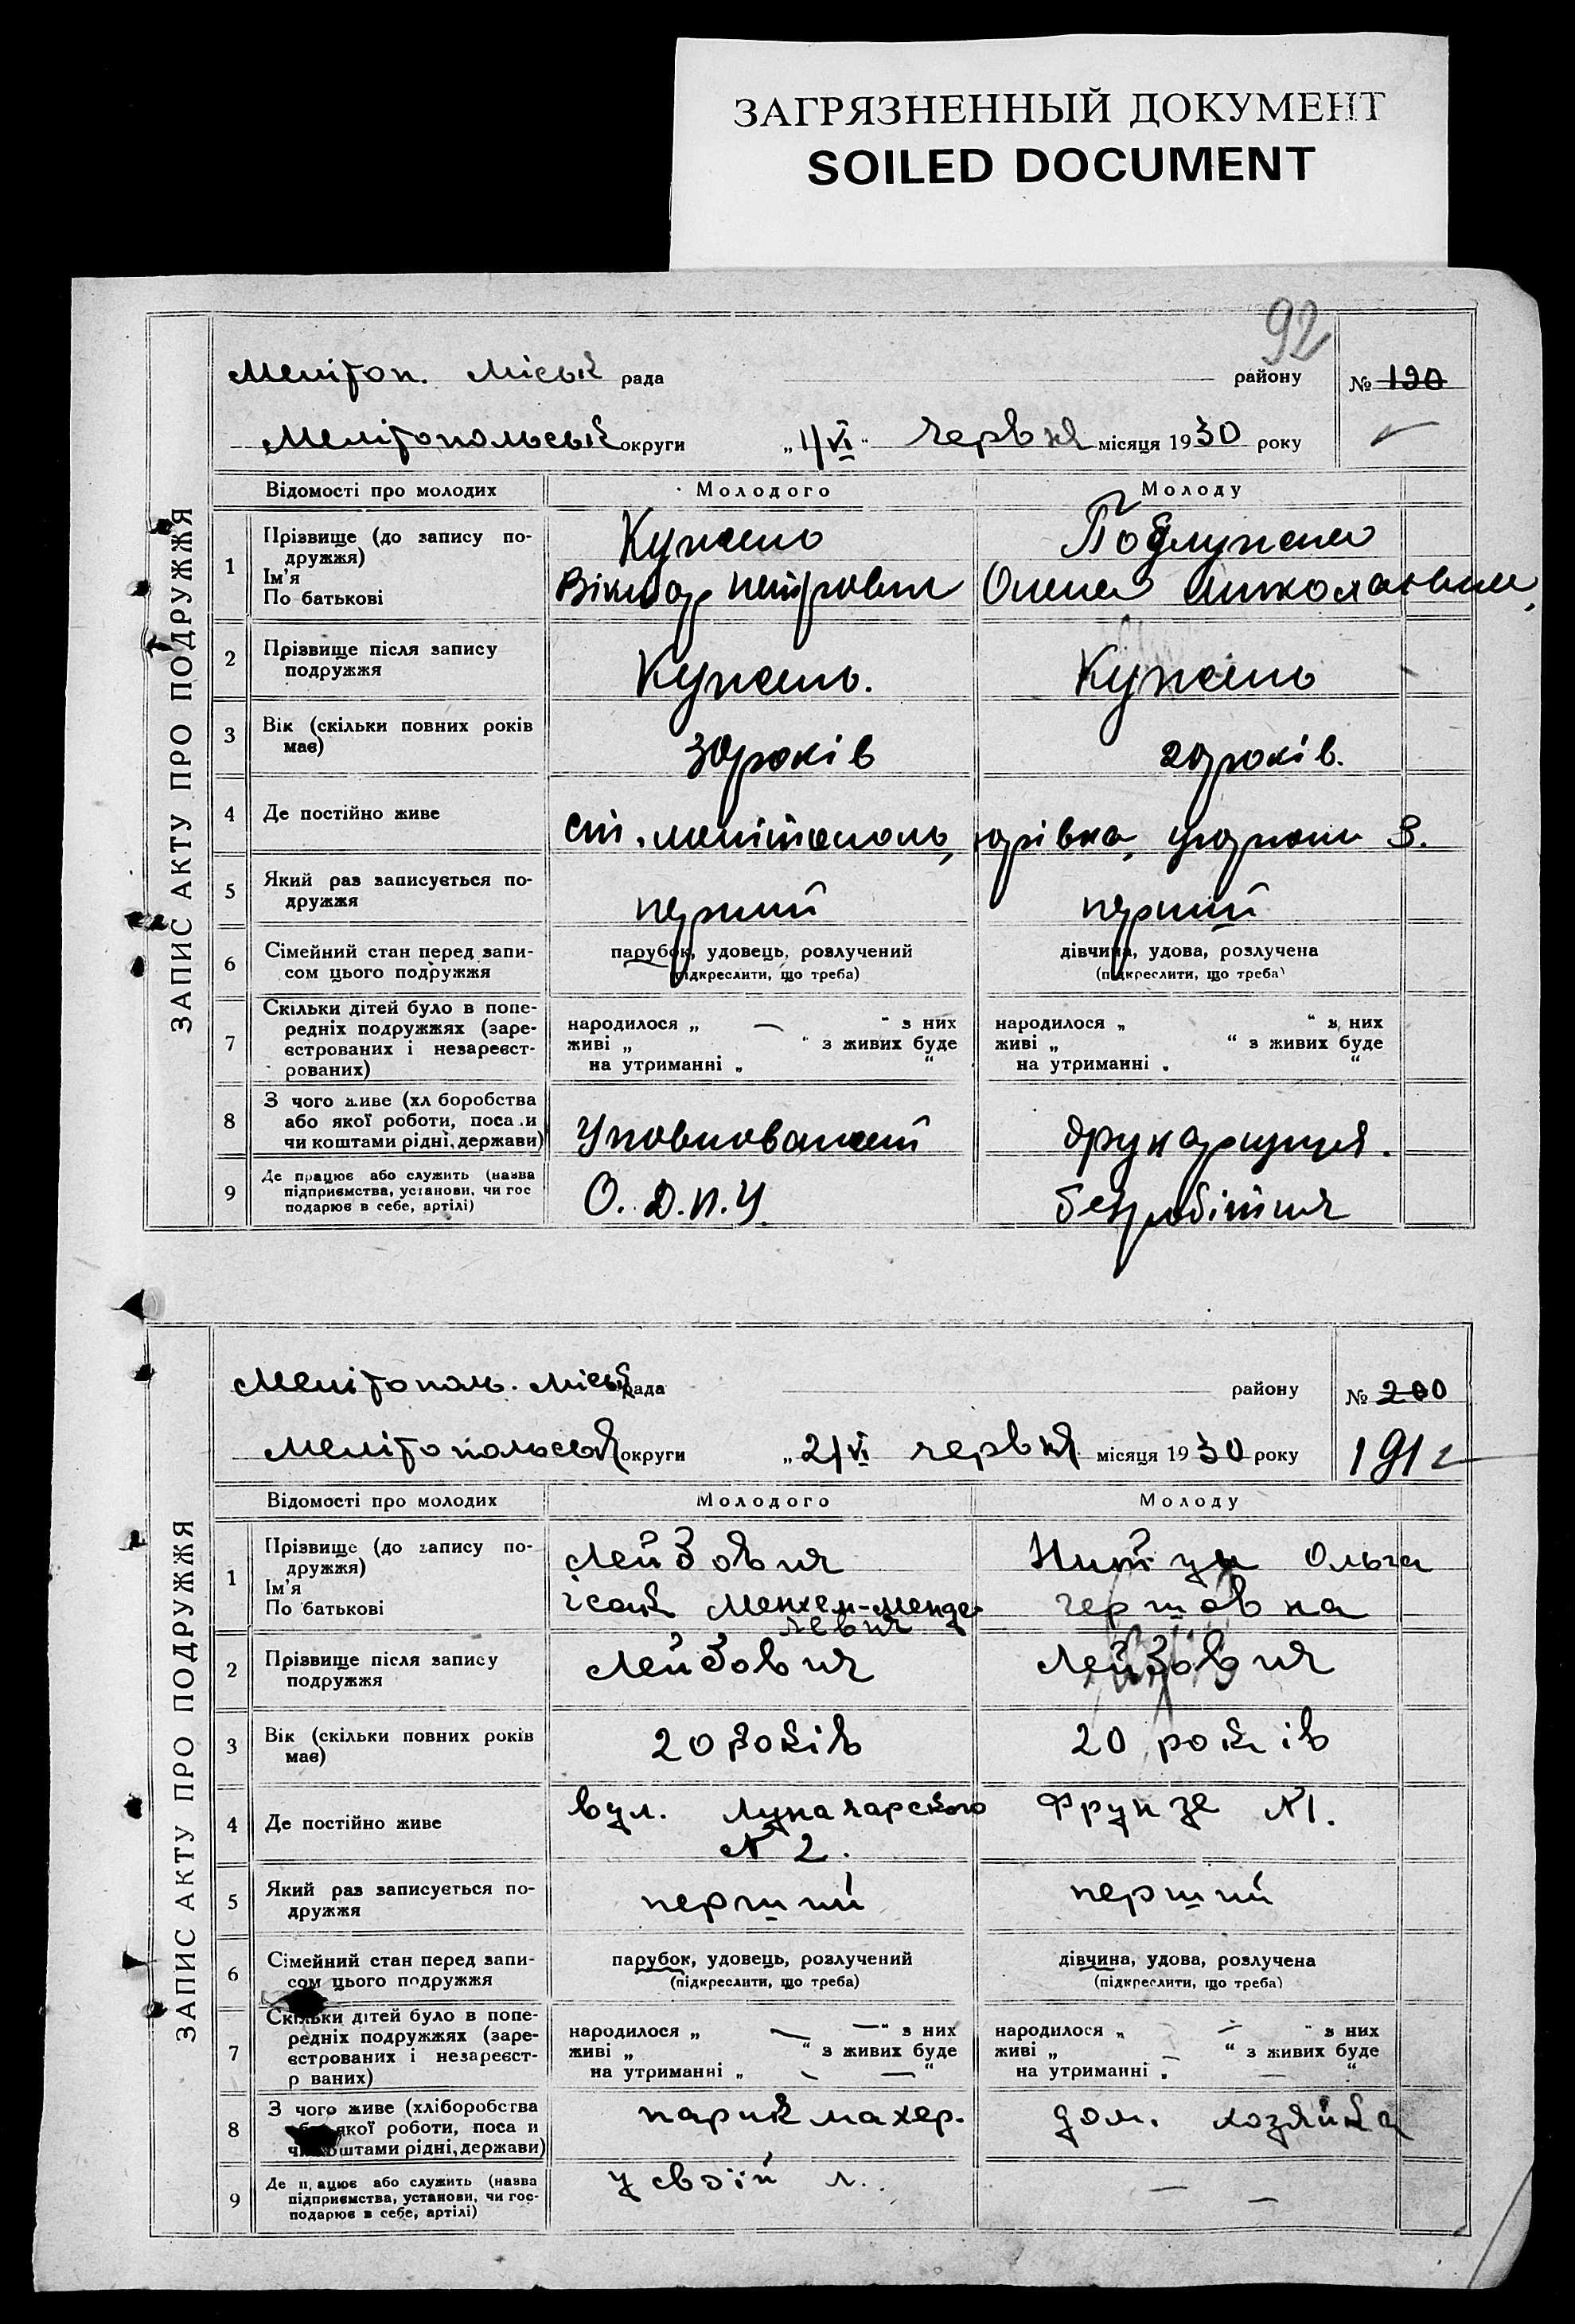 ЗАГРЯЗНЕННЫЙ ДОКУМЕНТ
SOILED DOCUMENT
92
Мелітоп. Міськ рада району № 190
Мелітопольськ округи „1/VI“ червня місяця 1930 року
ЗАПИС АКТУ ПРО ПОДРУЖЖЯ
Відомості про молодих Молодого Молоду
1 Прізвище (до запису по-
дружжя)
Ім'я
По батькові
Віктор Петрович Олена Миколаївна
2 Прізвище після запису
подружжя
3 Вік (скільки повних років
має)
30 років 20 років.
4 Де постійно живе
ст. Мелітополь,
5 Який раз записується по-
дружжя
перший перший
6 Сімейний стан перед запи-
сом цього подружжя
парубок, удовець, розлучений дівчина, удова, розлучена
(підкреслити, що треба) (підкреслити, що треба)
7 Скільки дітей було в попе-
редніх подружжях (заре-
єстрованих і незареєст-
рованих)
народилося „ — “ з них народилося „ “ з них
живі „ “ з живих буде живі „ “ з живих буде
на утриманні „ “ на утриманні „ “
8 З чого живе (хл боробства
або якої роботи, поса и
чи коштами рідні, держави)
Уповноважений
9 Де працює або служить (назва
підприємства, установи, чи гос
подарює в себе, артілі)
О.Д.П.У. безробітня
Мелітополь. Міськ рада району № 200
Мелітопольськ округи „2/VI червня місяця 1930 року 191
ЗАПИС АКТУ ПРО ПОДРУЖЖЯ
Відомості про молодих Молодого Молоду
1 Прізвище (до запису по-
дружжя)
Ім'я
По батькові
Лейзович Ольга
Ісак Менхем-Менде- Гершовна
левич
2 Прізвище після запису
подружжя
Лейзович Лейзович
3 Вік (скільки повних років
має)
20 років 20 років
4 Де постійно живе
вул. Луначарского Фрунзе №1.
№ 2.
5 Який раз записується по-
дружжя
перший перший
6 Сімейний стан перед запи-
сом цього подружжя
парубок, удовець, розлучений дівчина, удова, розлучена
(підкреслити, що треба) (підкреслити, що треба)
7 Скільки дітей було в попе-
редніх подружжях (заре-
єстрованих і незареєст-
р ваних)
народилося „ — —“ з них народилося „ — “ з них
живі „ “ з живих буде живі „ — “ з живих буде
на утриманні „ — —“ на утриманні „ — “
8 З чого живе (хліборобства
або якої роботи, поса и
чи коштами рідні, держави)
парикмахер. дом. хозяйка
9 Де п ацює або служить (назва
підприємства, установи, чи гос-
подарює в себе, артілі)
у своїй — —